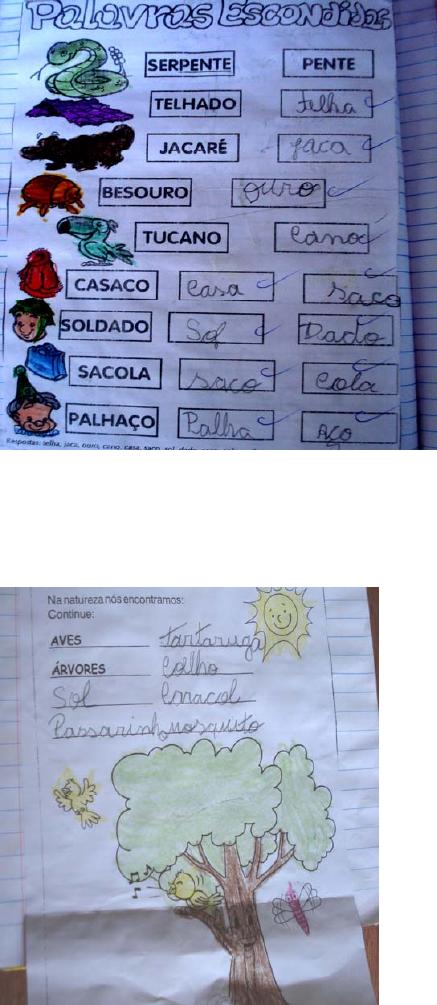 Palavras Escondidas
SERPENTE PENTE
TELHADO telha
JACARÉ jaca
BESOURO ouro
TUCANO cano
CASACO casa saco
SOLDADO Sol Dado
SACOLA saco cola
PALHAÇO Palha Aço
Respostas: telha, jaca, ouro, cano, casa, saco, sol, dado,
Na natureza nós encontramos:
Continue:
AVES Tartaruga
ÁRVORES Coelho
Sol Caracol
Passarinho mosquito